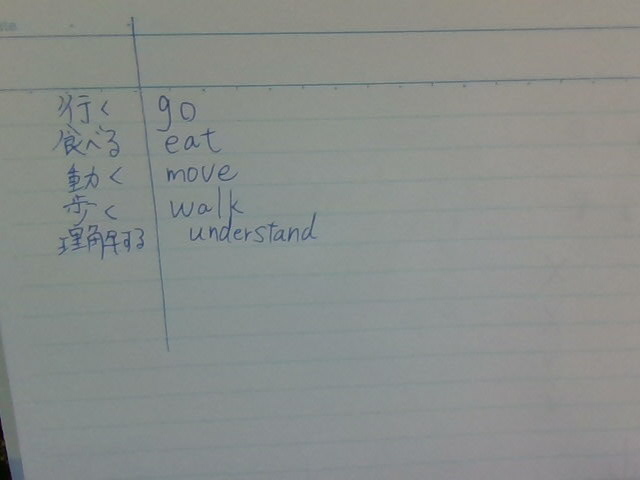 行く go
食べる eat
動く move
歩く walk
理解する understand